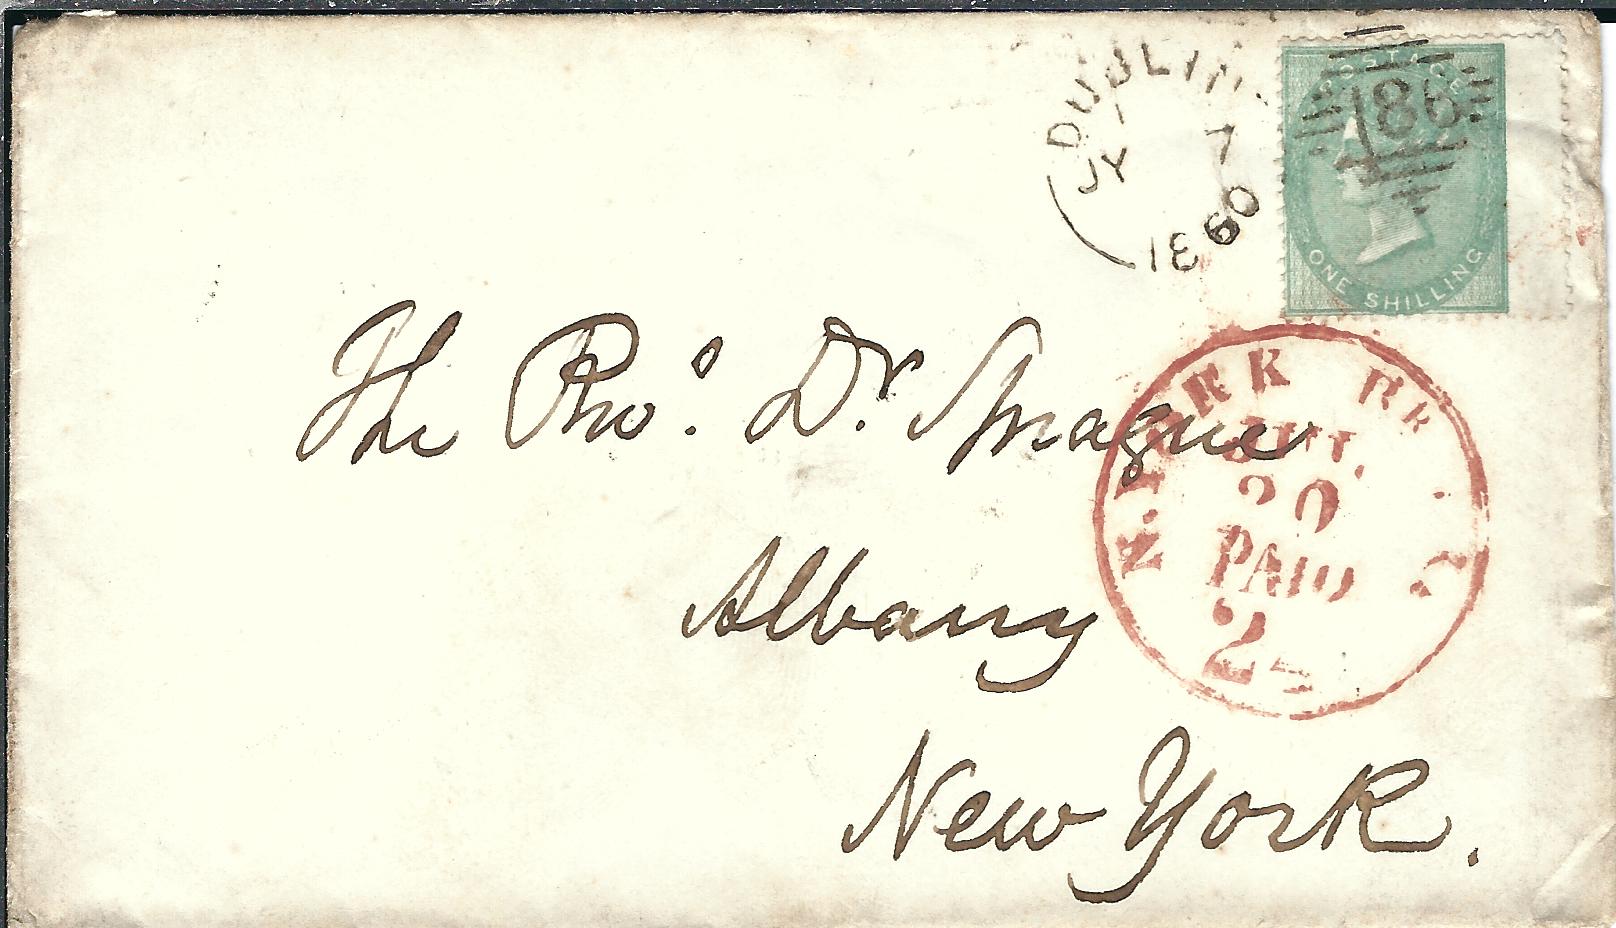 DUBLIN
JY 7
1860
POSTAGE
186
ONE SHILLING
The Revd. Dr. Sprague
Albany
New York.
N. YORK
JUL.
20
PAID
24